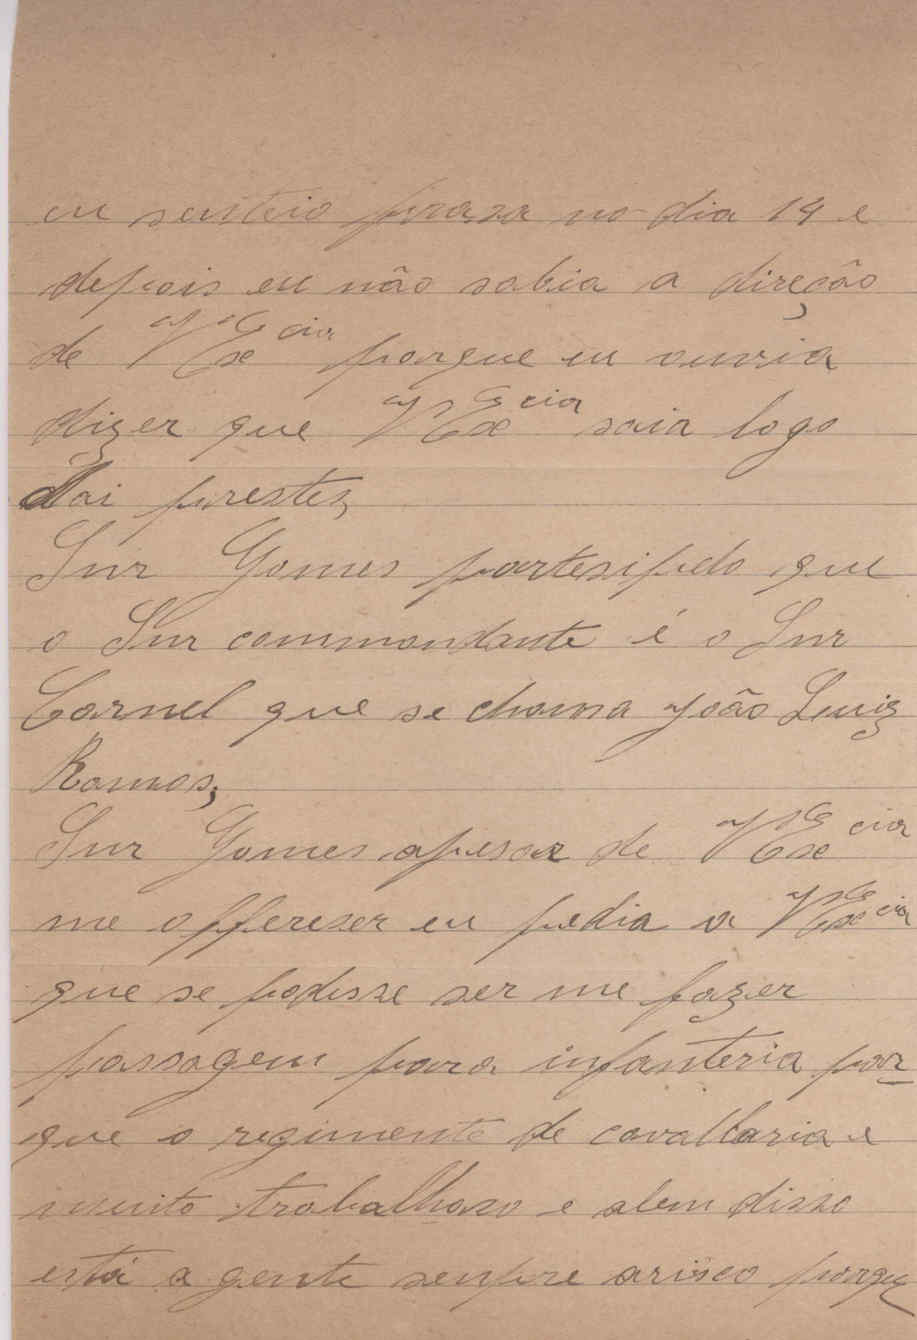 eu senteio praza no dia 14 e
depois eu não sabia a direção
de VExcia porque eu ouvria
dizer que VExcia saia logo
dai prestes,
Snr Gomes partesipelo que
o Snr commandante é o Snr
Cornel que se chama João Luiz
Ramos;
Snr Gomes apesar de VExcia
me offereser eu pedia a VExcia
que se podesse ser me fazer
passagem para infanteria por
que o regimento de cavallaria e
muito trabalhoso e alem disso
está a gente senpre arisco porque